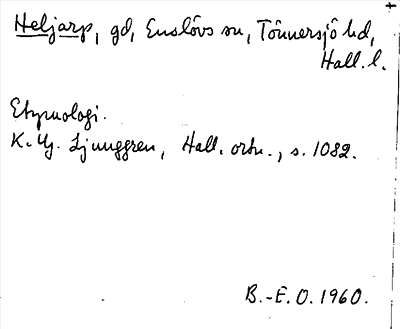 Heljarp, gd, Enslövs sn, Tönnersjö hd,
Hall. l.
Etymologi.
K. G. Ljunggren, Hall. ortn., s. 1082.
B.-E. O. 1960.